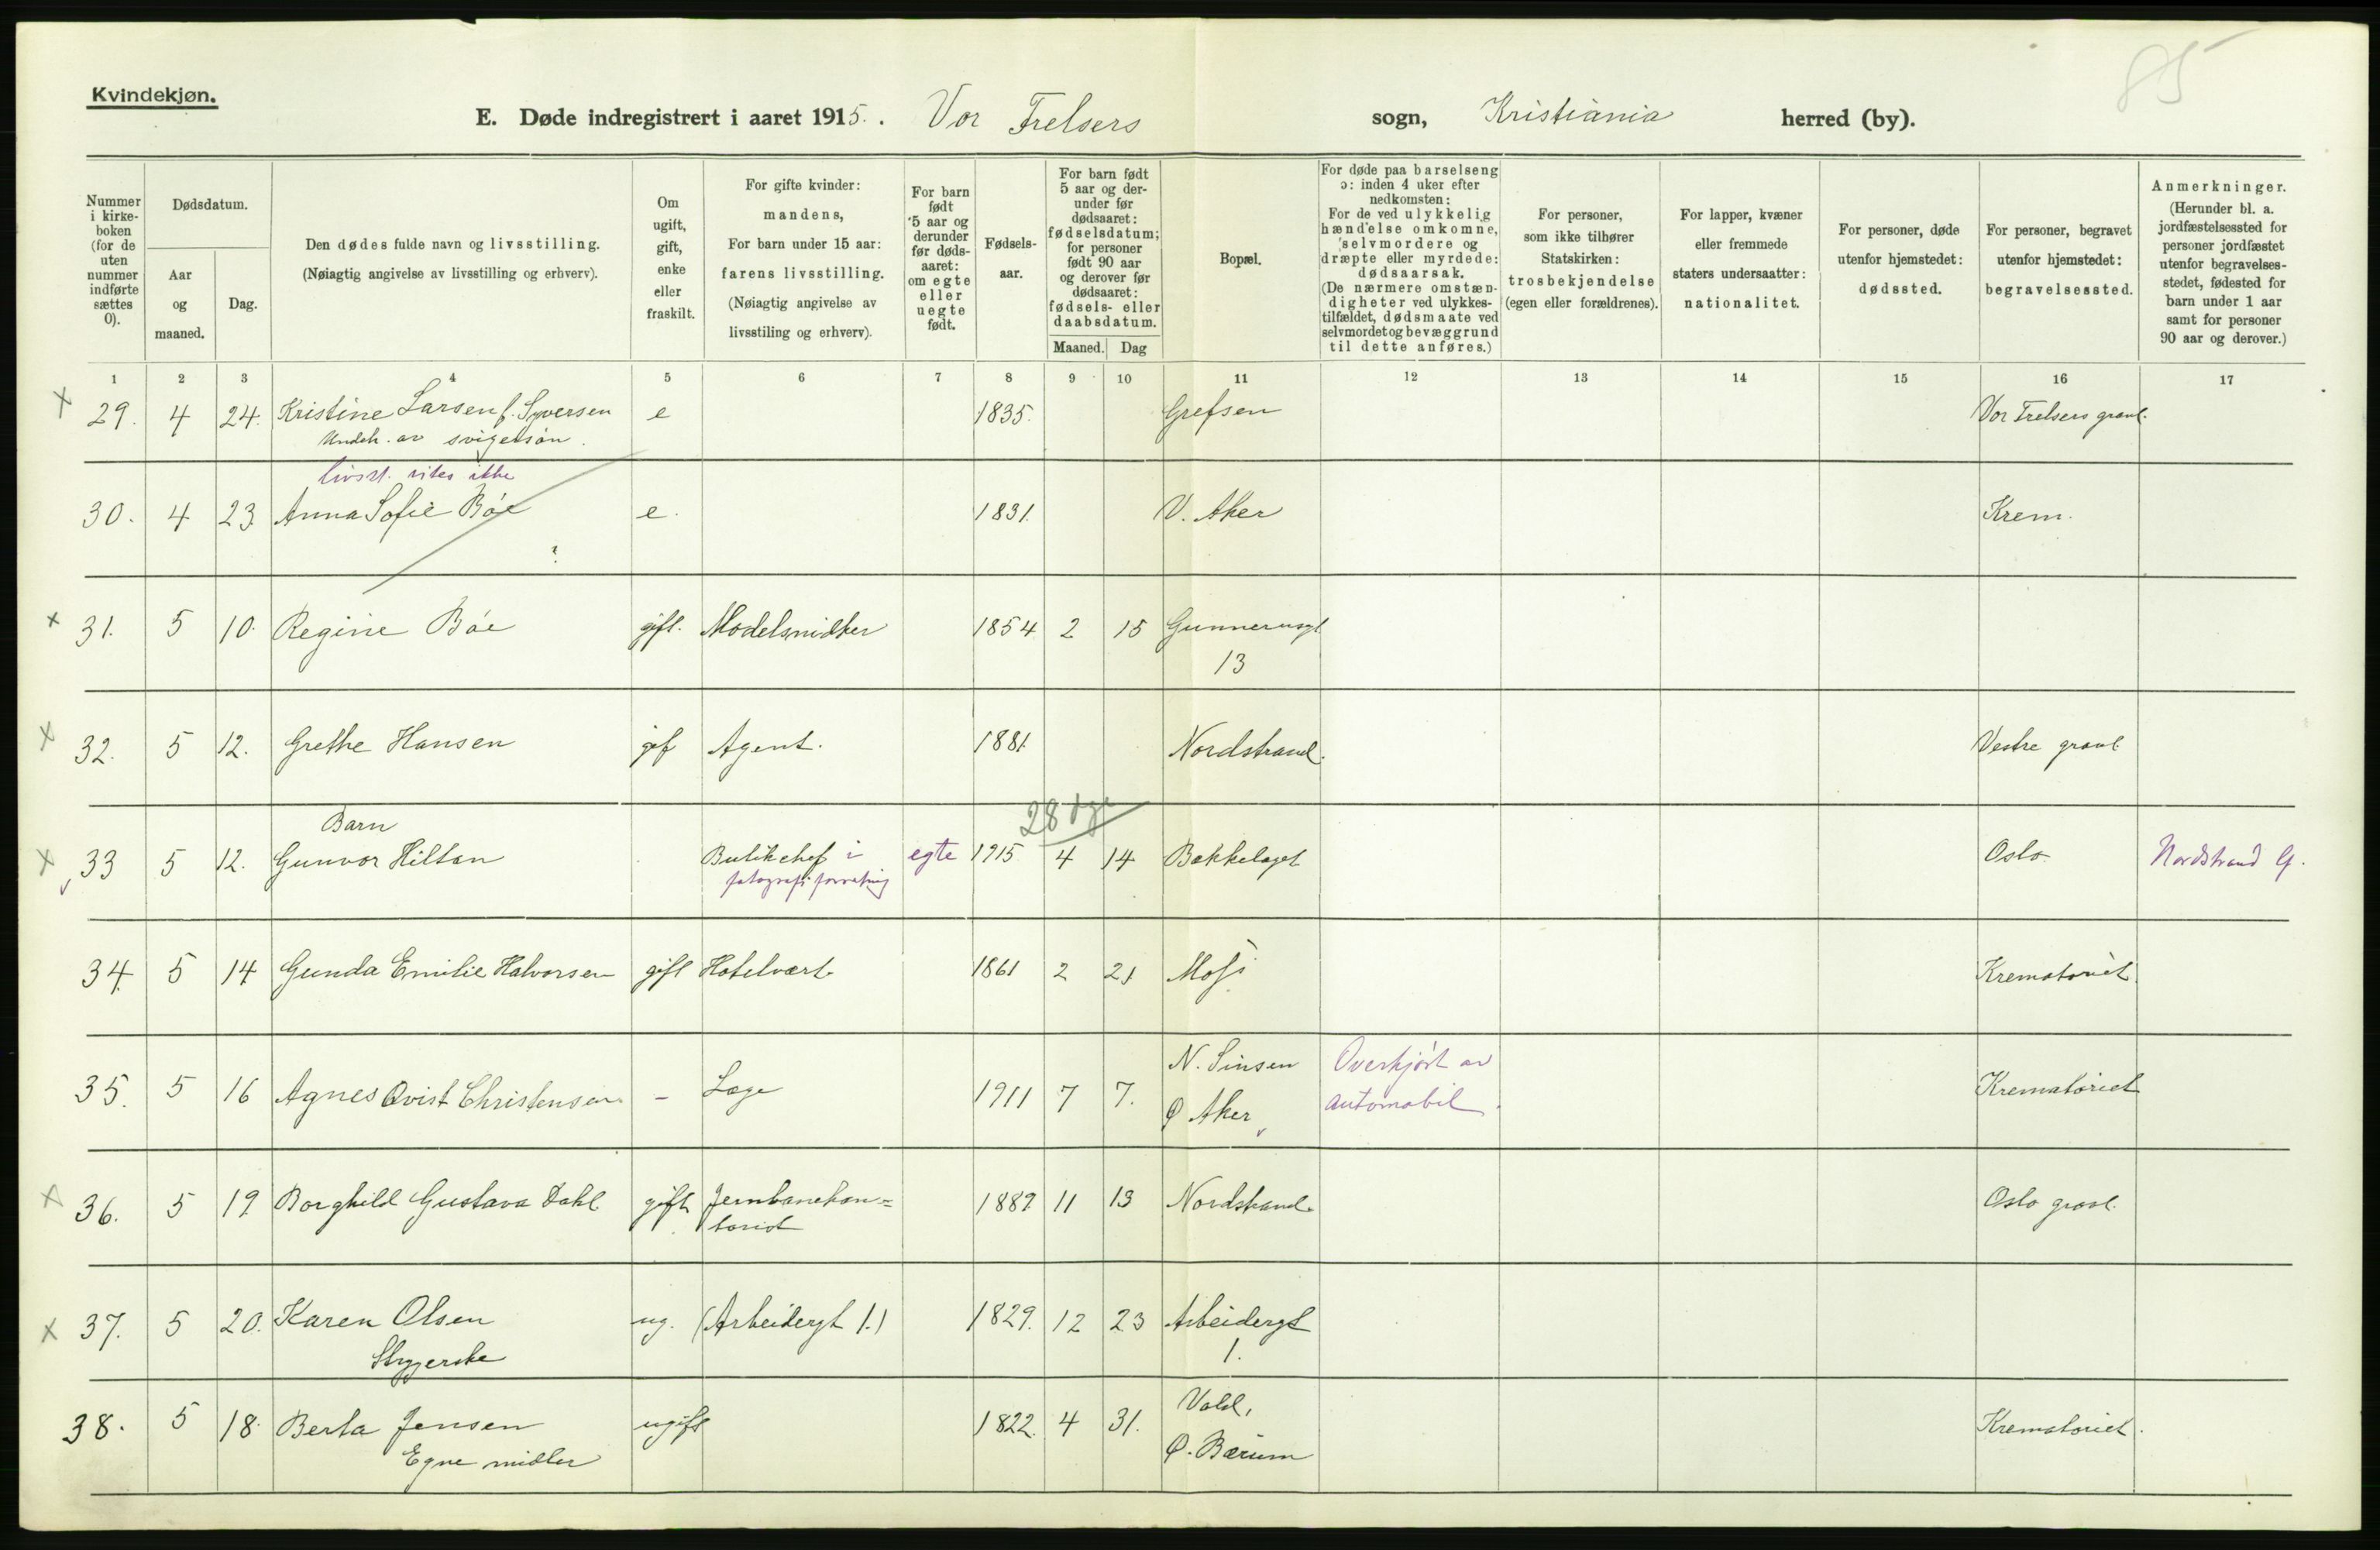 85
Kvindekjøn.
E. Døde indregistrert i aaret 1915. Vor Frelsers sogn, Kristiania herred (by).
Nummer i kirkeboken (for de uten nummer indførte sættes 0).
Dødsdatum.
Aar og maaned.
Dag.
Den dødes fulde navn og livsstilling.
(Nøiagtig angivelse av livsstilling og erhverv).
Om ugift, gift, enke eller fraskilt.
For gifte kvinder: mandens,
For barn under 15 aar: farens livsstilling.
(Nøiagtig angivelse av livsstiling og erhverv).
For barn født 5 aar og derunder før dødsaaret: om egte eller uegte født.
Fødsels-aar.
For barn født 5 aar og derunder før dødsaaret: fødselsdatum; for personer født 90 aar og derover før dødsaaret: fødsels- eller daabsdatum.
Maaned. Dag
Bopæl.
For døde paa barselseng ɔ: inden 4 uker efter nedkomsten:
For de ved ulykkelig hændelse omkomne, selvmordere og dræpte eller myrdede: dødsaarsak.
(De nærmere omstændigheter ved ulykkestilfældet, dødsmaate ved selvmordet og bevæggrund til dette anføres.)
For personer, som ikke tilhører Statskirken: trosbekjendelse (egen eller forældrenes).
For lapper, kvæner eller fremmede staters undersaatter: nationalitet.
For personer, døde utenfor hjemstedet: dødssted.
For personer, begravet utenfor hjemstedet: begravelsessted.
Anmerkninger.
(Herunder bl. a. jordfæstelsessted for personer jordfæstet utenfor begravelsesstedet, fødested for barn under 1 aar samt for personer 90 aar og derover.)
1 2 3 4 5 6 7 8 9 10 11 12 13 14 15 16 17
29. 4 24. Kristine Larsen f. Syversen e 1835. Grefsen Vor Frelsers gravl.
Underh. av svigersøn.
livsst. vites ikke
30. 4 23. Anna Sofie Bøe e. 1831. V. Aker Krem.
?
31. 5 10. Regine Bøe gift. Modelsnidker 1854 2 15 Gunnerusgt
13
32. 5 12. Grethe Hansen gif Agent. 1881. Nordstrand. Vestre gravl.
Barn
28 dge
33 5 12. Gunvor Hiltan Butikchef i egte 1915. 4 14 Bækkelaget Oslo. Nordstrand
fotografiforretning
34. 5 14 Gunda Emilie Halvorsen gift Hotelvært 1861 2 21 Moss Krematoriet.
35. 5 16 Agnes Qvist Christensen - Læge 1911 7 7. N. Sinsen Overkjørt av Krematoriet
Ø Aker automobil.
36. 5 19. Borghild Gustava Dahl gift Jernbanekon= 1889. 11 13 Nordstrand. Oslo gravl.
torist
37. 5 20. Karen Olsen ug. (Arbeidergt 1.) 1829. 12 23 Arbeidergt
Strygerske 1.
38. 5 18. Berta Jensen ugift 1822. 4 31. Vold, Krematoriet.
Egne midler Ø. Bærum